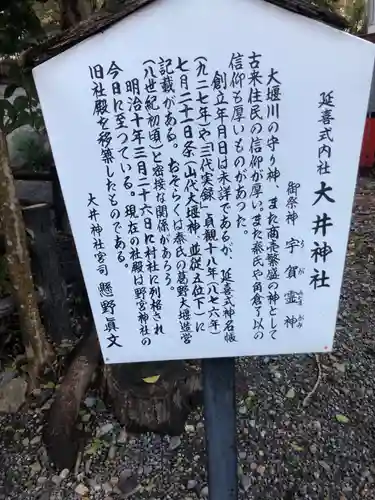 延喜式内社 大井神社
御祭神 宇賀霊神
うがみたまのかみ
大堰川の守り神、また商売繁盛の神として
古来住民の信仰が厚い。また秦氏や角倉了以の
信仰も厚いものがあった。
創立年月日は未詳であるが、延喜式神名帳
(九二七年)や三代実録、貞観十八年(八七六年)
七月二十一日条(山代大堰神 並従五位下)に
記載がある。おそらくは秦氏の葛野大堰造営
(八世紀初頃)と密接な関係があろう。
明治十年三月二十六日に村社に列格され
今日に至っている。現在の社殿は野宮神社の
旧社殿を移築したものである。
大井神社宮司 懸野眞文